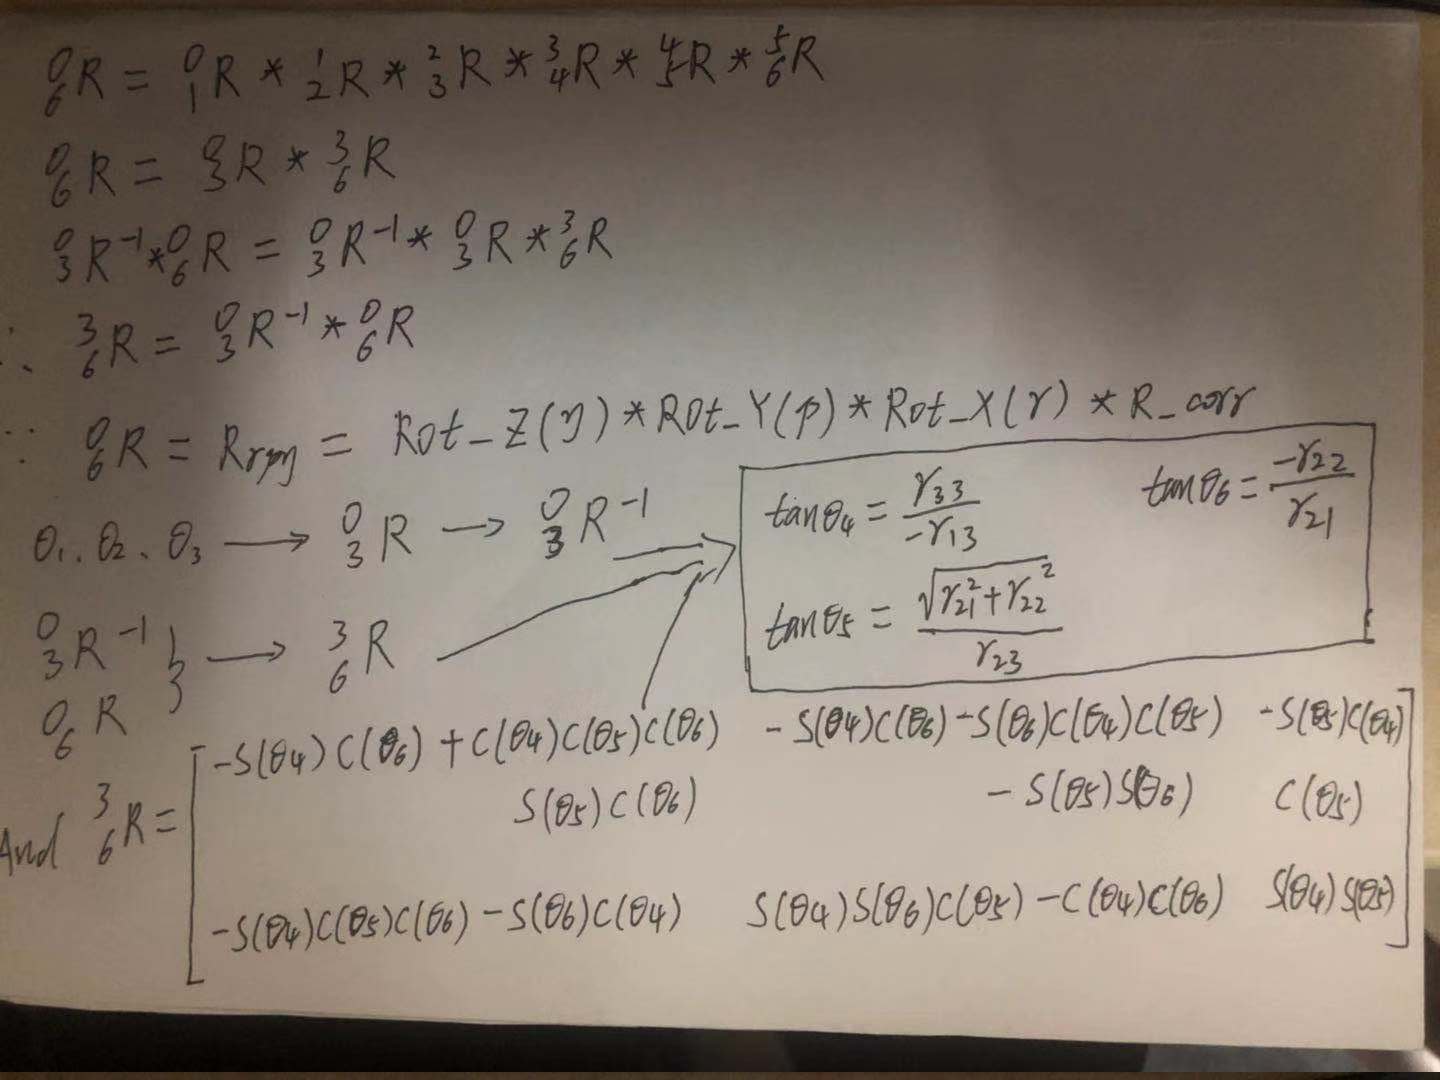 ⁰₆R = ⁰₁R * ¹₂R * ²₃R * ³₄R * ⁴₅R * ⁵₆R
⁰₆R = ⁰₃R * ³₆R
⁰₃R⁻¹ * ⁰₆R = ⁰₃R⁻¹ * ⁰₃R * ³₆R
∴ ³₆R = ⁰₃R⁻¹ * ⁰₆R
∵ ⁰₆R = Rrpy = Rot_Z(y) * Rot_Y(p) * Rot_X(r) * R_corr
θ₁、θ₂、θ₃ → ⁰₃R → ⁰₃R⁻¹
tanθ₄ = r₃₃ / -r₁₃
tanθ₆ = -r₂₂ / r₂₁
tanθ₅ = √(r₂₁² + r₂₂²) / r₂₃
⁰₃R⁻¹ } → ³₆R
⁰₆R
And ³₆R =
[ -S(θ4)C(θ6) + C(θ4)C(θ5)C(θ6) -S(θ4)C(θ6) - S(θ6)C(θ4)C(θ5) -S(θ5)C(θ4)
S(θ5)C(θ6) -S(θ5)S(θ6) C(θ5)
-S(θ4)C(θ5)C(θ6) - S(θ6)C(θ4) S(θ4)S(θ6)C(θ5) - C(θ4)C(θ6) S(θ4)S(θ5) ]